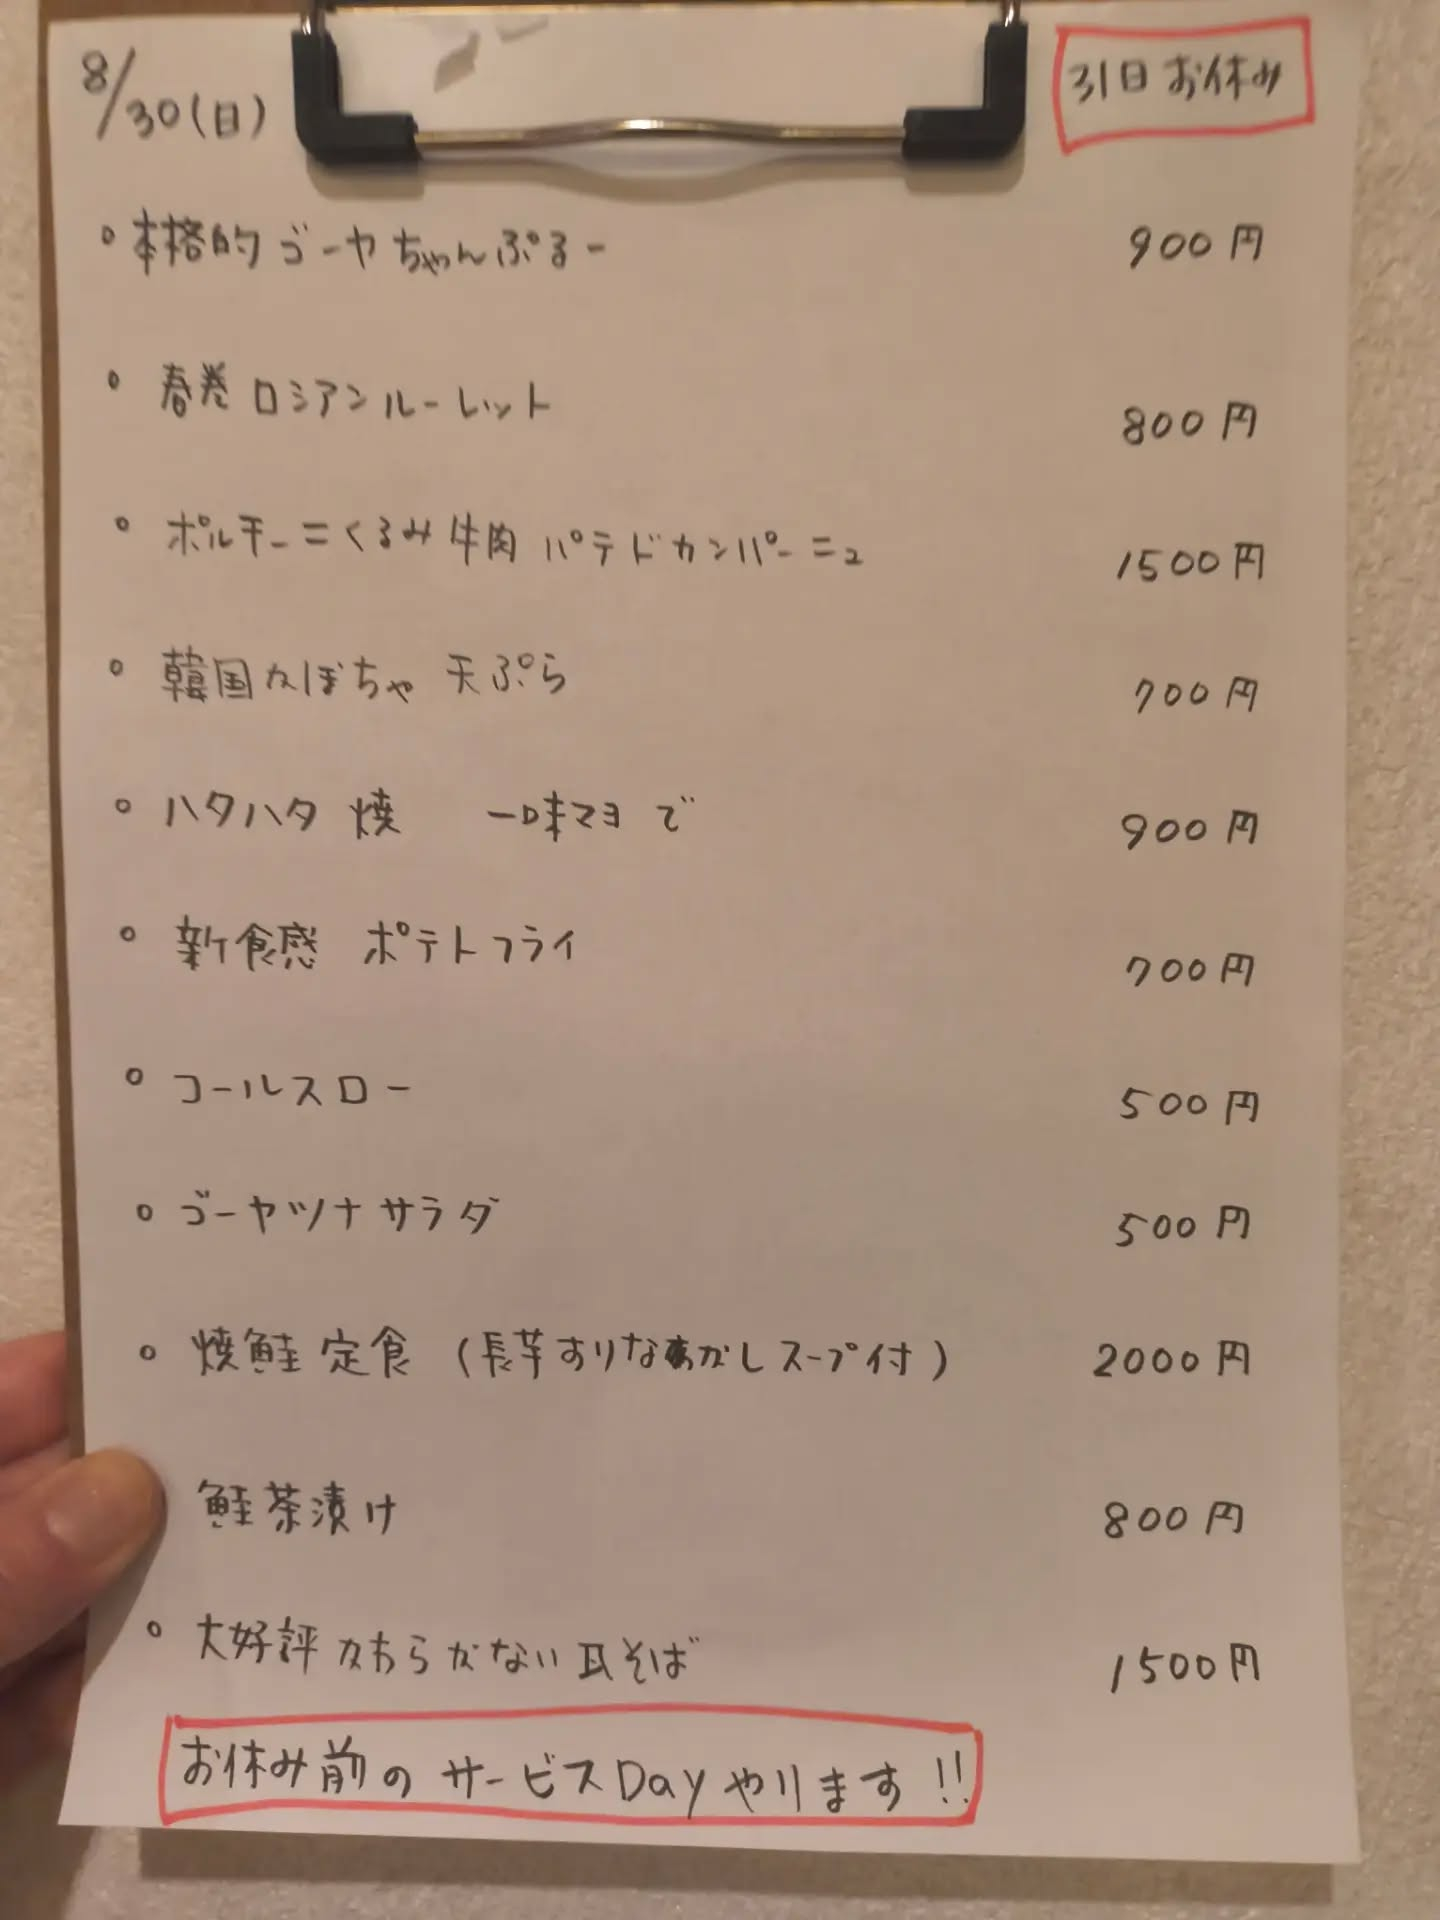 8/30(日)
31日お休み
・本格的ゴーヤちゃんぷるー 900円
・春巻ロシアンルーレット 800円
・ポルチーニくるみ牛肉パテドカンパーニュ 1500円
・韓国かぼちゃ 天ぷら 700円
・ハタハタ 焼 一味マヨで 900円
・新食感 ポテトフライ 700円
・コールスロー 500円
・ゴーヤツナサラダ 500円
・焼鮭定食(長芋すりながしスープ付) 2000円
鮭茶漬け 800円
・大好評かわらかない瓦そば 1500円
お休み前のサービスDayやります!!